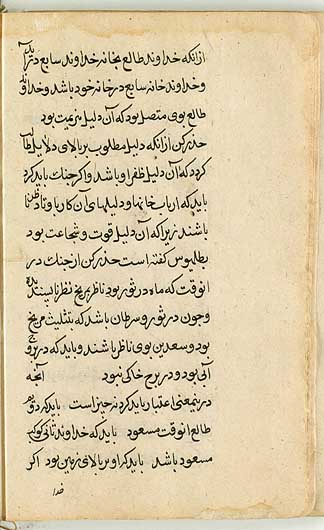 ازانکه خداوند طالع بخانه خداوند سابع در
و خداوند خانه سابع در خانه خود باشد و خداوند
طالع بوی متصل بود که آن دلیل هزیمت بود
حذر کن ازانکه دلیل مطلوب بر بالای دلایل طالب
کرد که آن دلیل ظفر او باشد و اکر جنك باید کرد
باید که ارباب خانها و دلیلهای آن کار باوتاد ناظر
باشند زیرا که آن دلیل قوت و شجاعت بود
بطلمیوس کفته است حذر کن از جنك در
انوقت که ماه در ثور بود ناظر بمریخ نظر ناپسندیده
و چون در ثور و سرطان باشد که بتثلیث مریخ
بود و سعدین بوی ناظر باشند و باید که در برج
آبی بود و در برج خاکی نبود انچه
درینمعنی اعتبار باید کرد نه چیز است باید که دوم
طالع انوقت مسعود باید که خداوند ثانی کوکب
مسعود باشد باید که او بر بالای زمین بود اکر
خدا